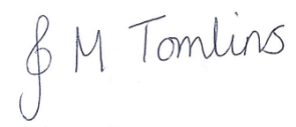 M Tomlins